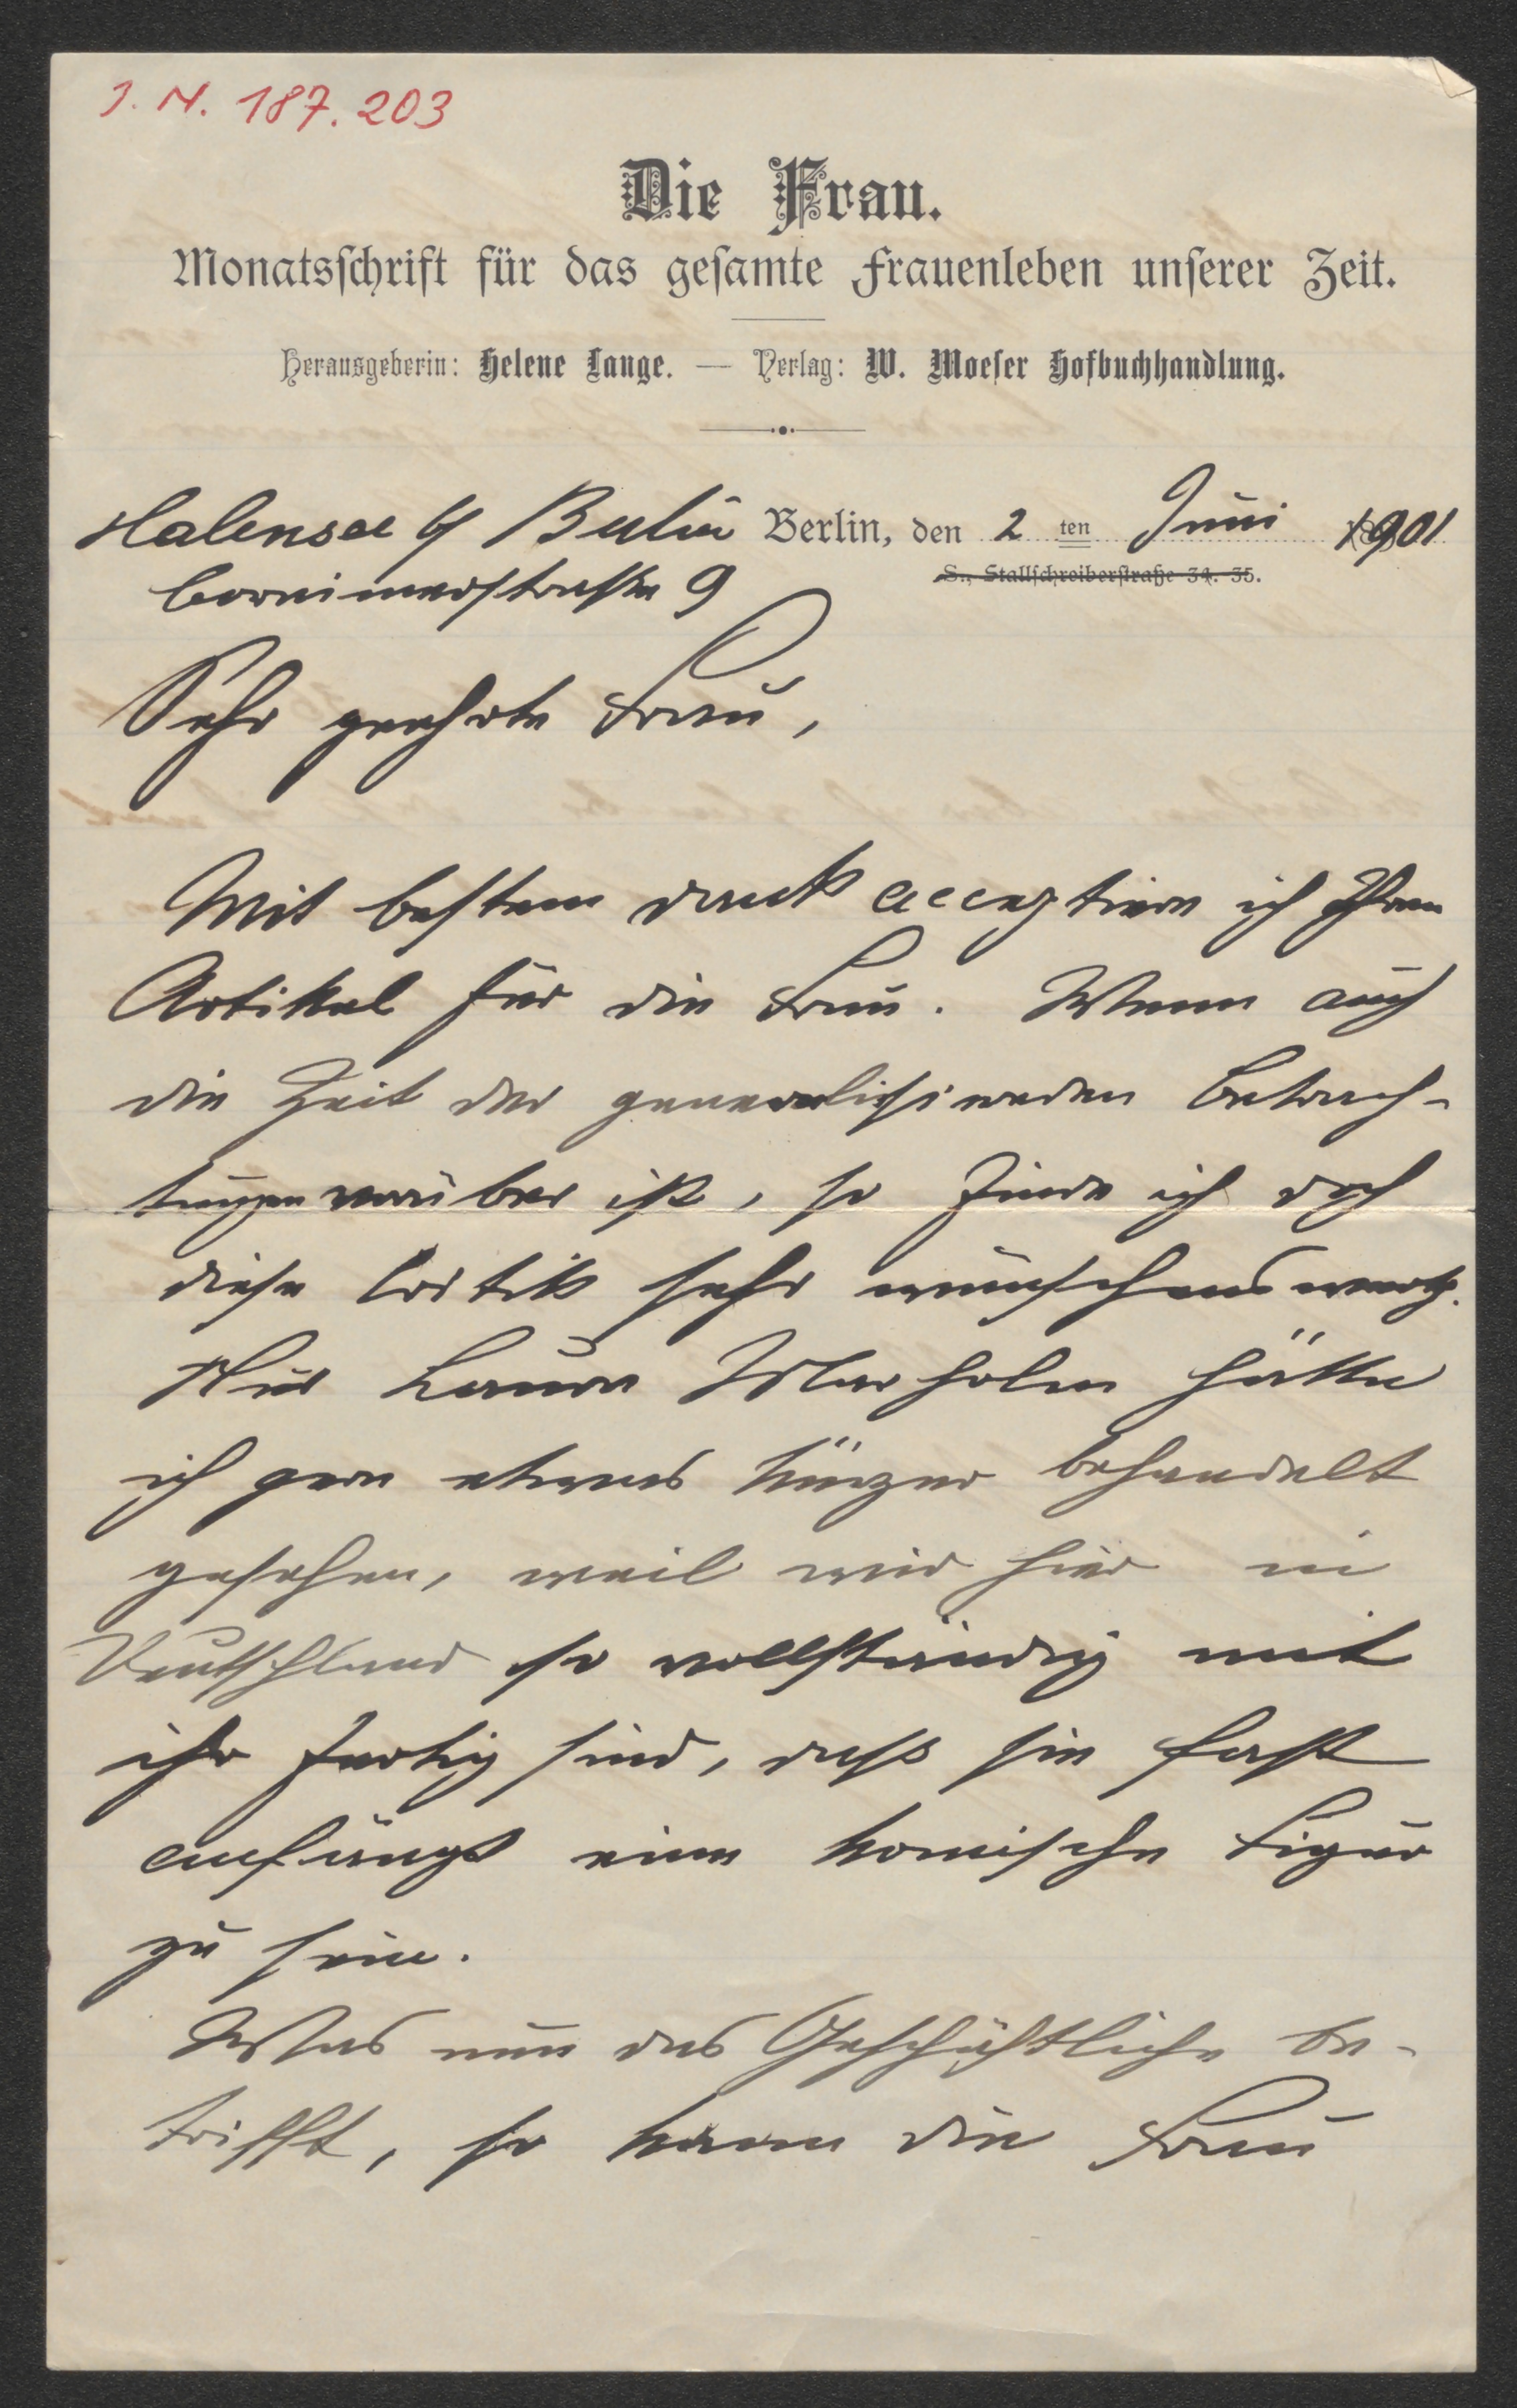 J. N. 187.203
Die Frau.
Monatsſchrift für das geſamte Frauenleben unſerer Zeit.
Herausgeberin: Helene Lange. — Verlag: W. Moeſer Hofbuchhandlung.
Halensee b/ Berlin Berlin, den 2 ten Juni 1901
S., Stallſchreiberſtraße 34. 35.
Bornimerstraße 9
Sehr geehrte Frau,
Mit bestem Dank acceptiere ich Ihren
Artikel für die Frau. Wenn auch
die Zeit der generalisierenden Betrach-
tungen vorüber ist, so finde ich doch
diese Critik sehr wünschenswerth.
Nur Laura Marholm hätte
ich gern etwas kürzer behandelt
gesehen, weil wir hier in
Deutschland so vollständig mit
ihr fertig sind, dass sie fast
anfängt eine komische Figur
zu sein.
Was nun das Geschäftliche be-
trifft, so kann die Frau